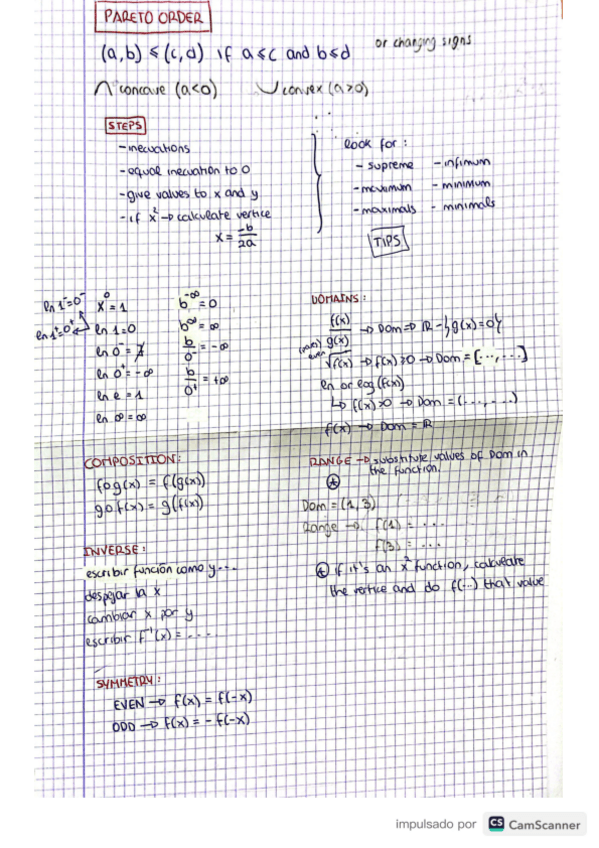 PARETO ORDER
(a,b) ≤ (c,d) if a≤c and b≤d or changing signs
∩ concave (a<0) ∪ convex (a>0)
STEPS
- inecuations
- equal inecuation to 0
- give values to x and y
- if x² → calculate vertice
x = -b/2a
look for:
- supreme - infimum
- maximum - minimum
- maximals - minimals
TIPS
ln 1⁻=0⁻
ln 1⁺=0⁺
x⁰=1
ln 1=0
ln 0⁻=∄
ln 0⁺=-∞
ln e=1
ln ∞=∞
b^-∞=0
b^∞=∞
b/0⁻=-∞
b/0⁺=+∞
DOMAINS:
f(x)/g(x) → Dom = ℝ - {g(x)=0}
even √f(x) → f(x)≥0 → Dom = [..., ...]
ln or log (f(x))
↳ f(x)>0 → Dom = (..., ...)
f(x) → Dom = ℝ
COMPOSITION:
fog(x) = f(g(x))
gof(x) = g(f(x))
RANGE → substitute values of Dom in
the function.
Dom = (1,3)
Range → f(1) = ...
f(3) = ...
if it's an x² function, calculate
the vertice and do f(...) that value
INVERSE:
escribir función como y...
despejar la x
cambiar x por y
escribir f⁻¹(x) = ....
SYMMETRY:
EVEN → f(x) = f(-x)
ODD → f(x) = -f(-x)
impulsado por CS CamScanner